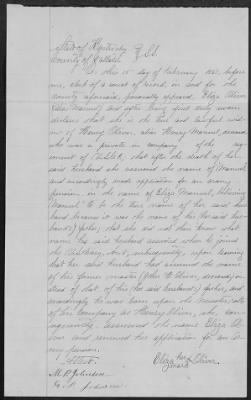 State of Kentucky } SS.
County of Gallatin
On this 15th day of February 1887, before
me, clerk of a court of record, in and for the
county aforesaid, personally appeared, Eliza Oliver
(alias Manuel) and after being first duly sworn
declares that she is the true and lawful wid-
ow of Henry Oliver, alias Henry Manuel, deceased
who was a private in company of the
regiment of that after the death of her
said husband she assumed the name of Manuel
and accordingly made application for an army
pension, in the name of Eliza Manuel, believing
"Manuel" to be the true name of her said hus-
band because it was the name of his (her said hus-
band's) father; that she did not then know what
name her said husband assumed when he joined
the Army, and, subsequently, upon learning
that her said husband had assumed the name
of his former master ( Oliver, deceased) in-
stead of that of his (her said husband's) father, and
accordingly he was borne upon the muster rolls
of his company as Henry Oliver, she, con-
sequently, assumed the name Eliza Ol-
iver and renewed her application for an ar-
my pension.
Attest.
M. P. Johnson
Eliza her x mark Oliver